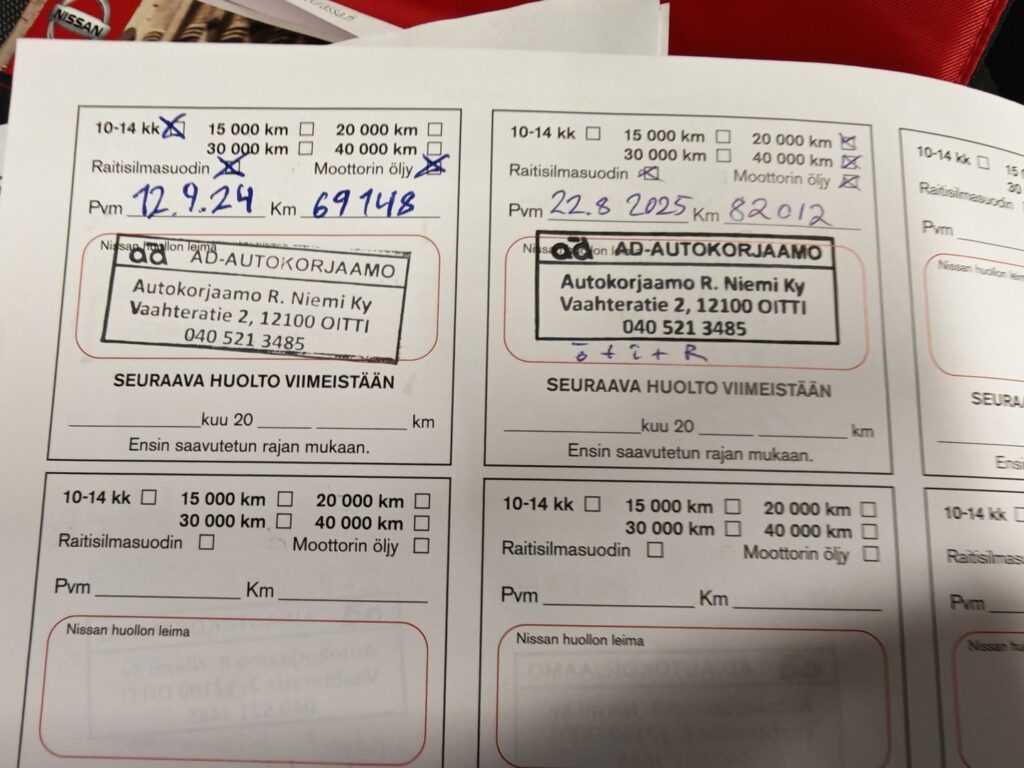 NISSAN
10-14 kk 15 000 km 20 000 km
30 000 km 40 000 km
Raitisilmasuodin Moottorin öljy
Pvm 12.9.24 Km 69148
Nissan huollon leima
ad AD-AUTOKORJAAMO
Autokorjaamo R. Niemi Ky
Vaahteratie 2, 12100 OITTI
040 521 3485
SEURAAVA HUOLTO VIIMEISTÄÄN
kuu 20 km
Ensin saavutetun rajan mukaan.
10-14 kk 15 000 km 20 000 km
30 000 km 40 000 km
Raitisilmasuodin Moottorin öljy
Pvm 22.8 2025 Km 82012
ad AD-AUTOKORJAAMO
Autokorjaamo R. Niemi Ky
Vaahteratie 2, 12100 OITTI
040 521 3485
SEURAAVA HUOLTO VIIMEISTÄÄN
kuu 20 km
Ensin saavutetun rajan mukaan.
10-14 kk
Pvm
Nissan huollon leima
10-14 kk 15 000 km 20 000 km
30 000 km 40 000 km
Raitisilmasuodin Moottorin öljy
Pvm Km
Nissan huollon leima
10-14 kk 15 000 km 20 000 km
30 000 km 40 000 km
Raitisilmasuodin Moottorin öljy
Pvm Km
Nissan huollon leima
10-14 kk
Pvm